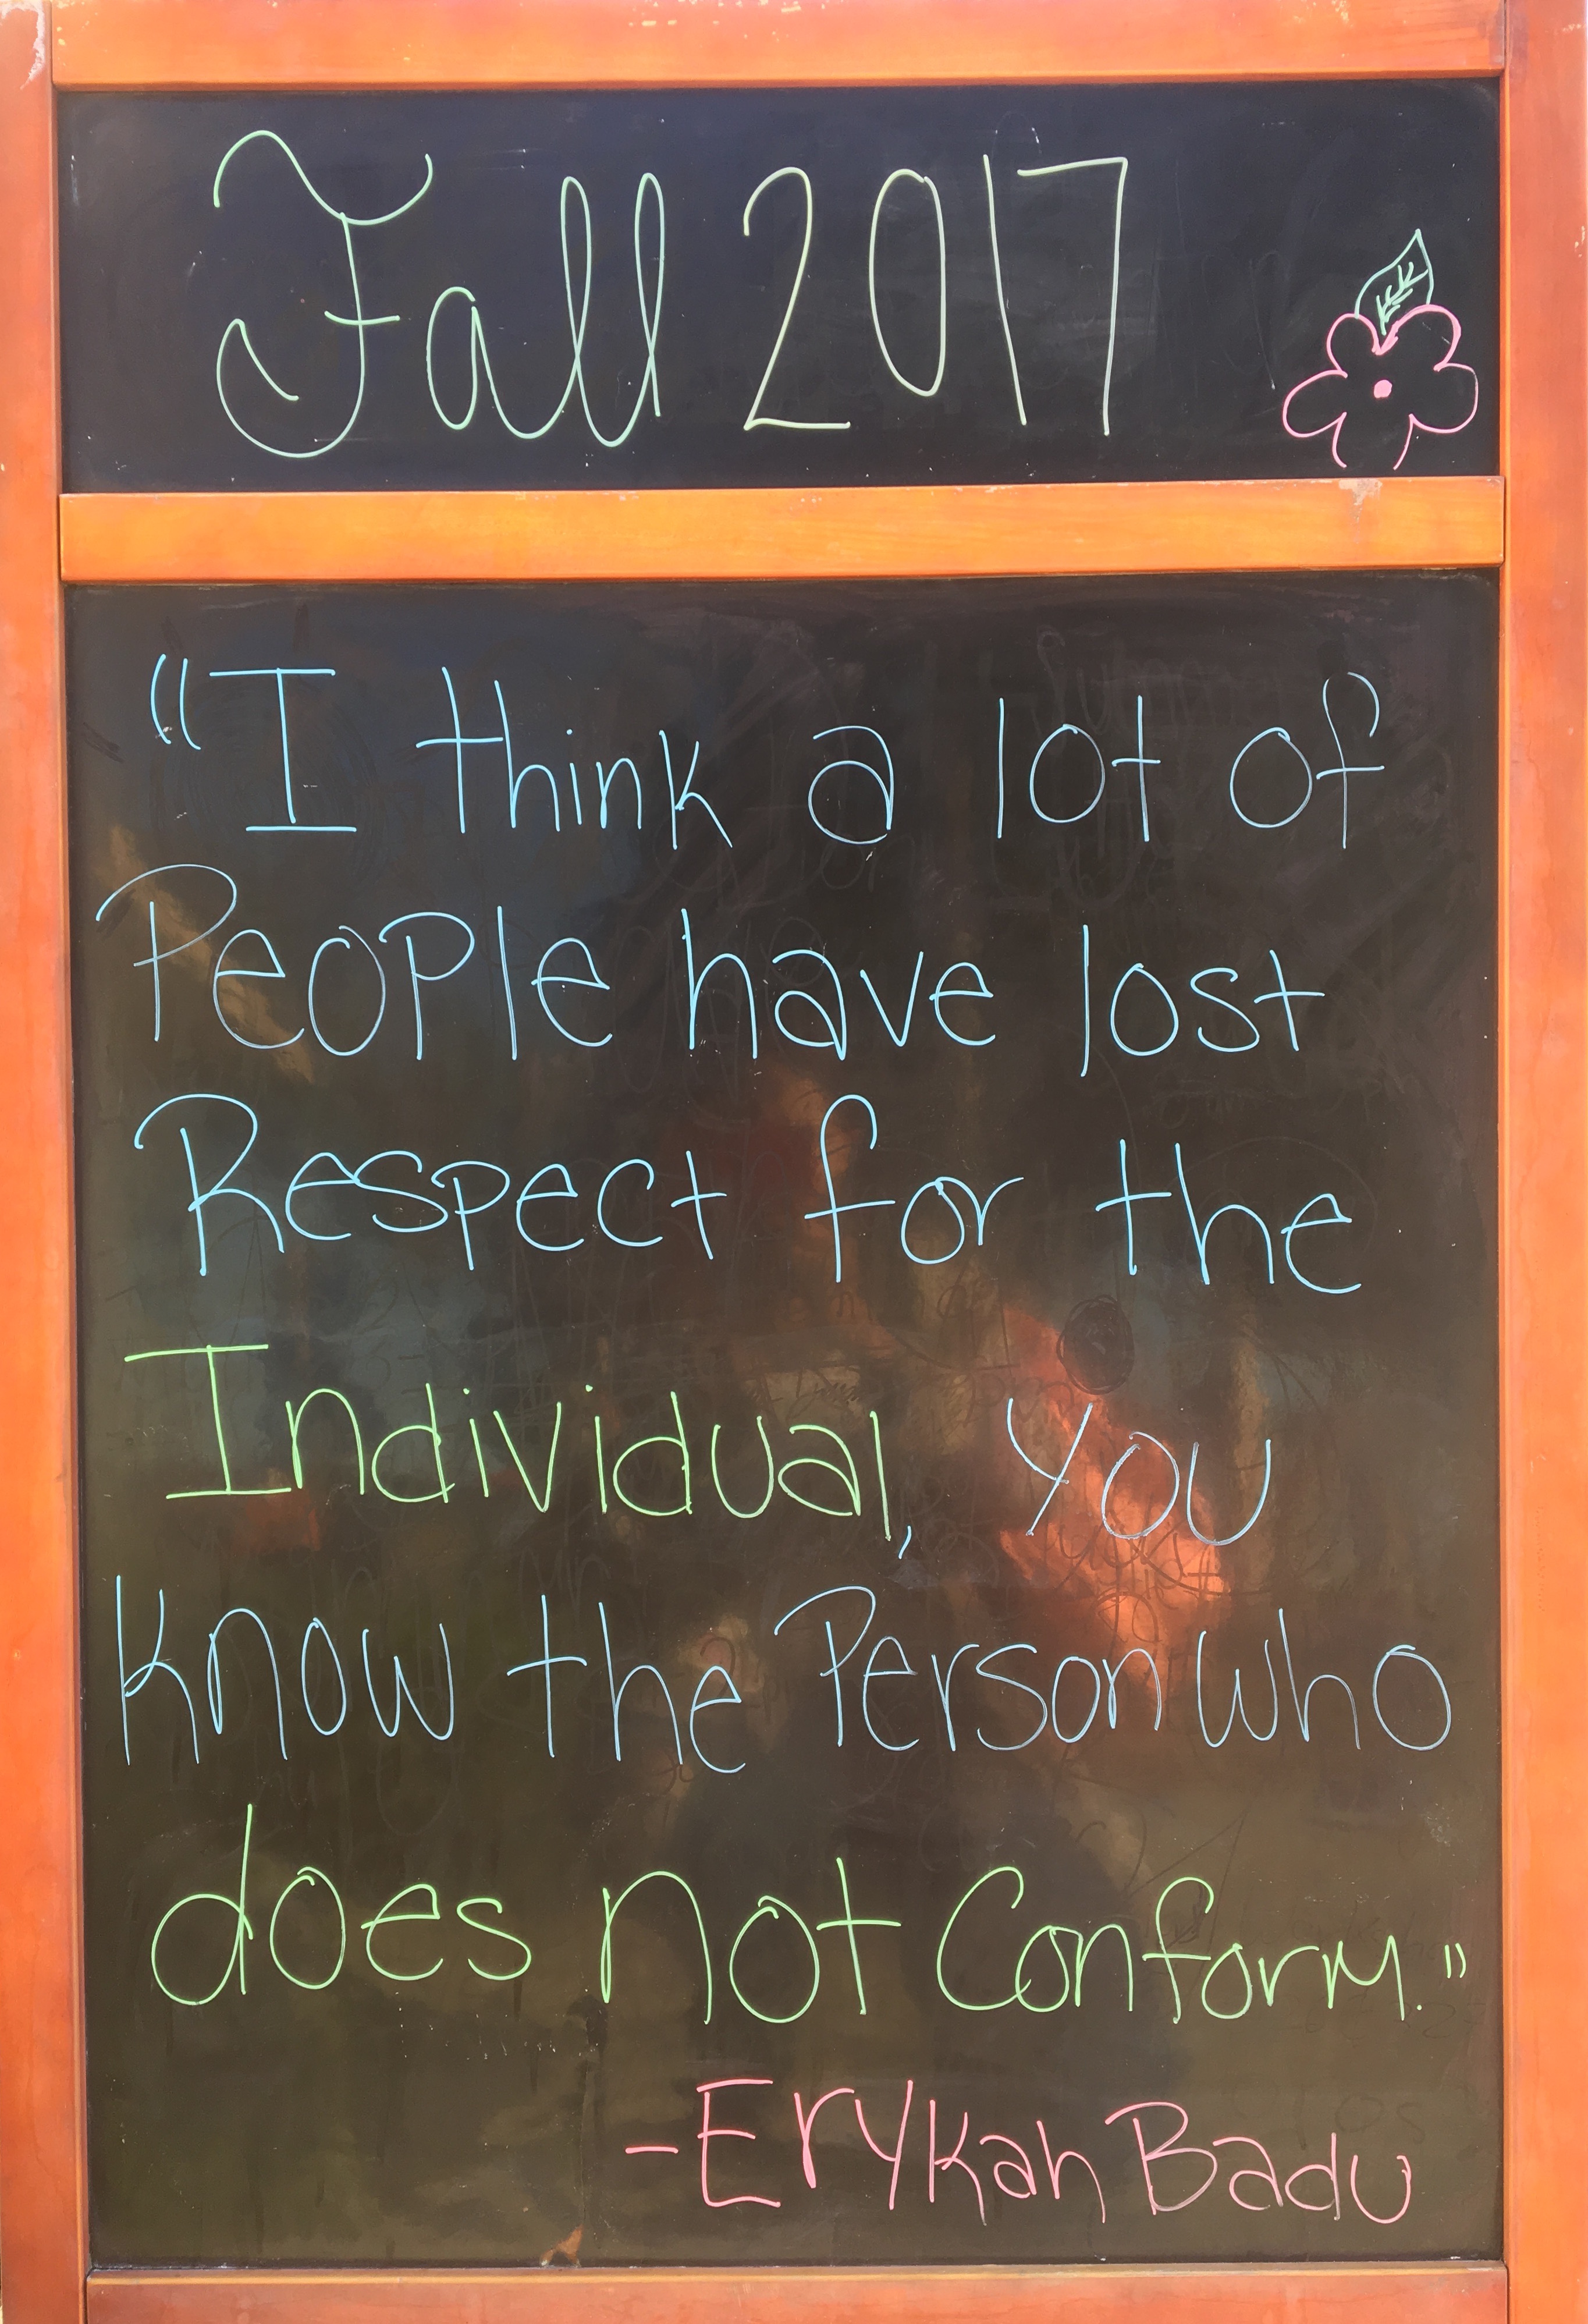 Fall 2017
"I think a lot of
People have lost
Respect for the
Individual, you
know the Person who
does not Conform."
-Erykah Badu